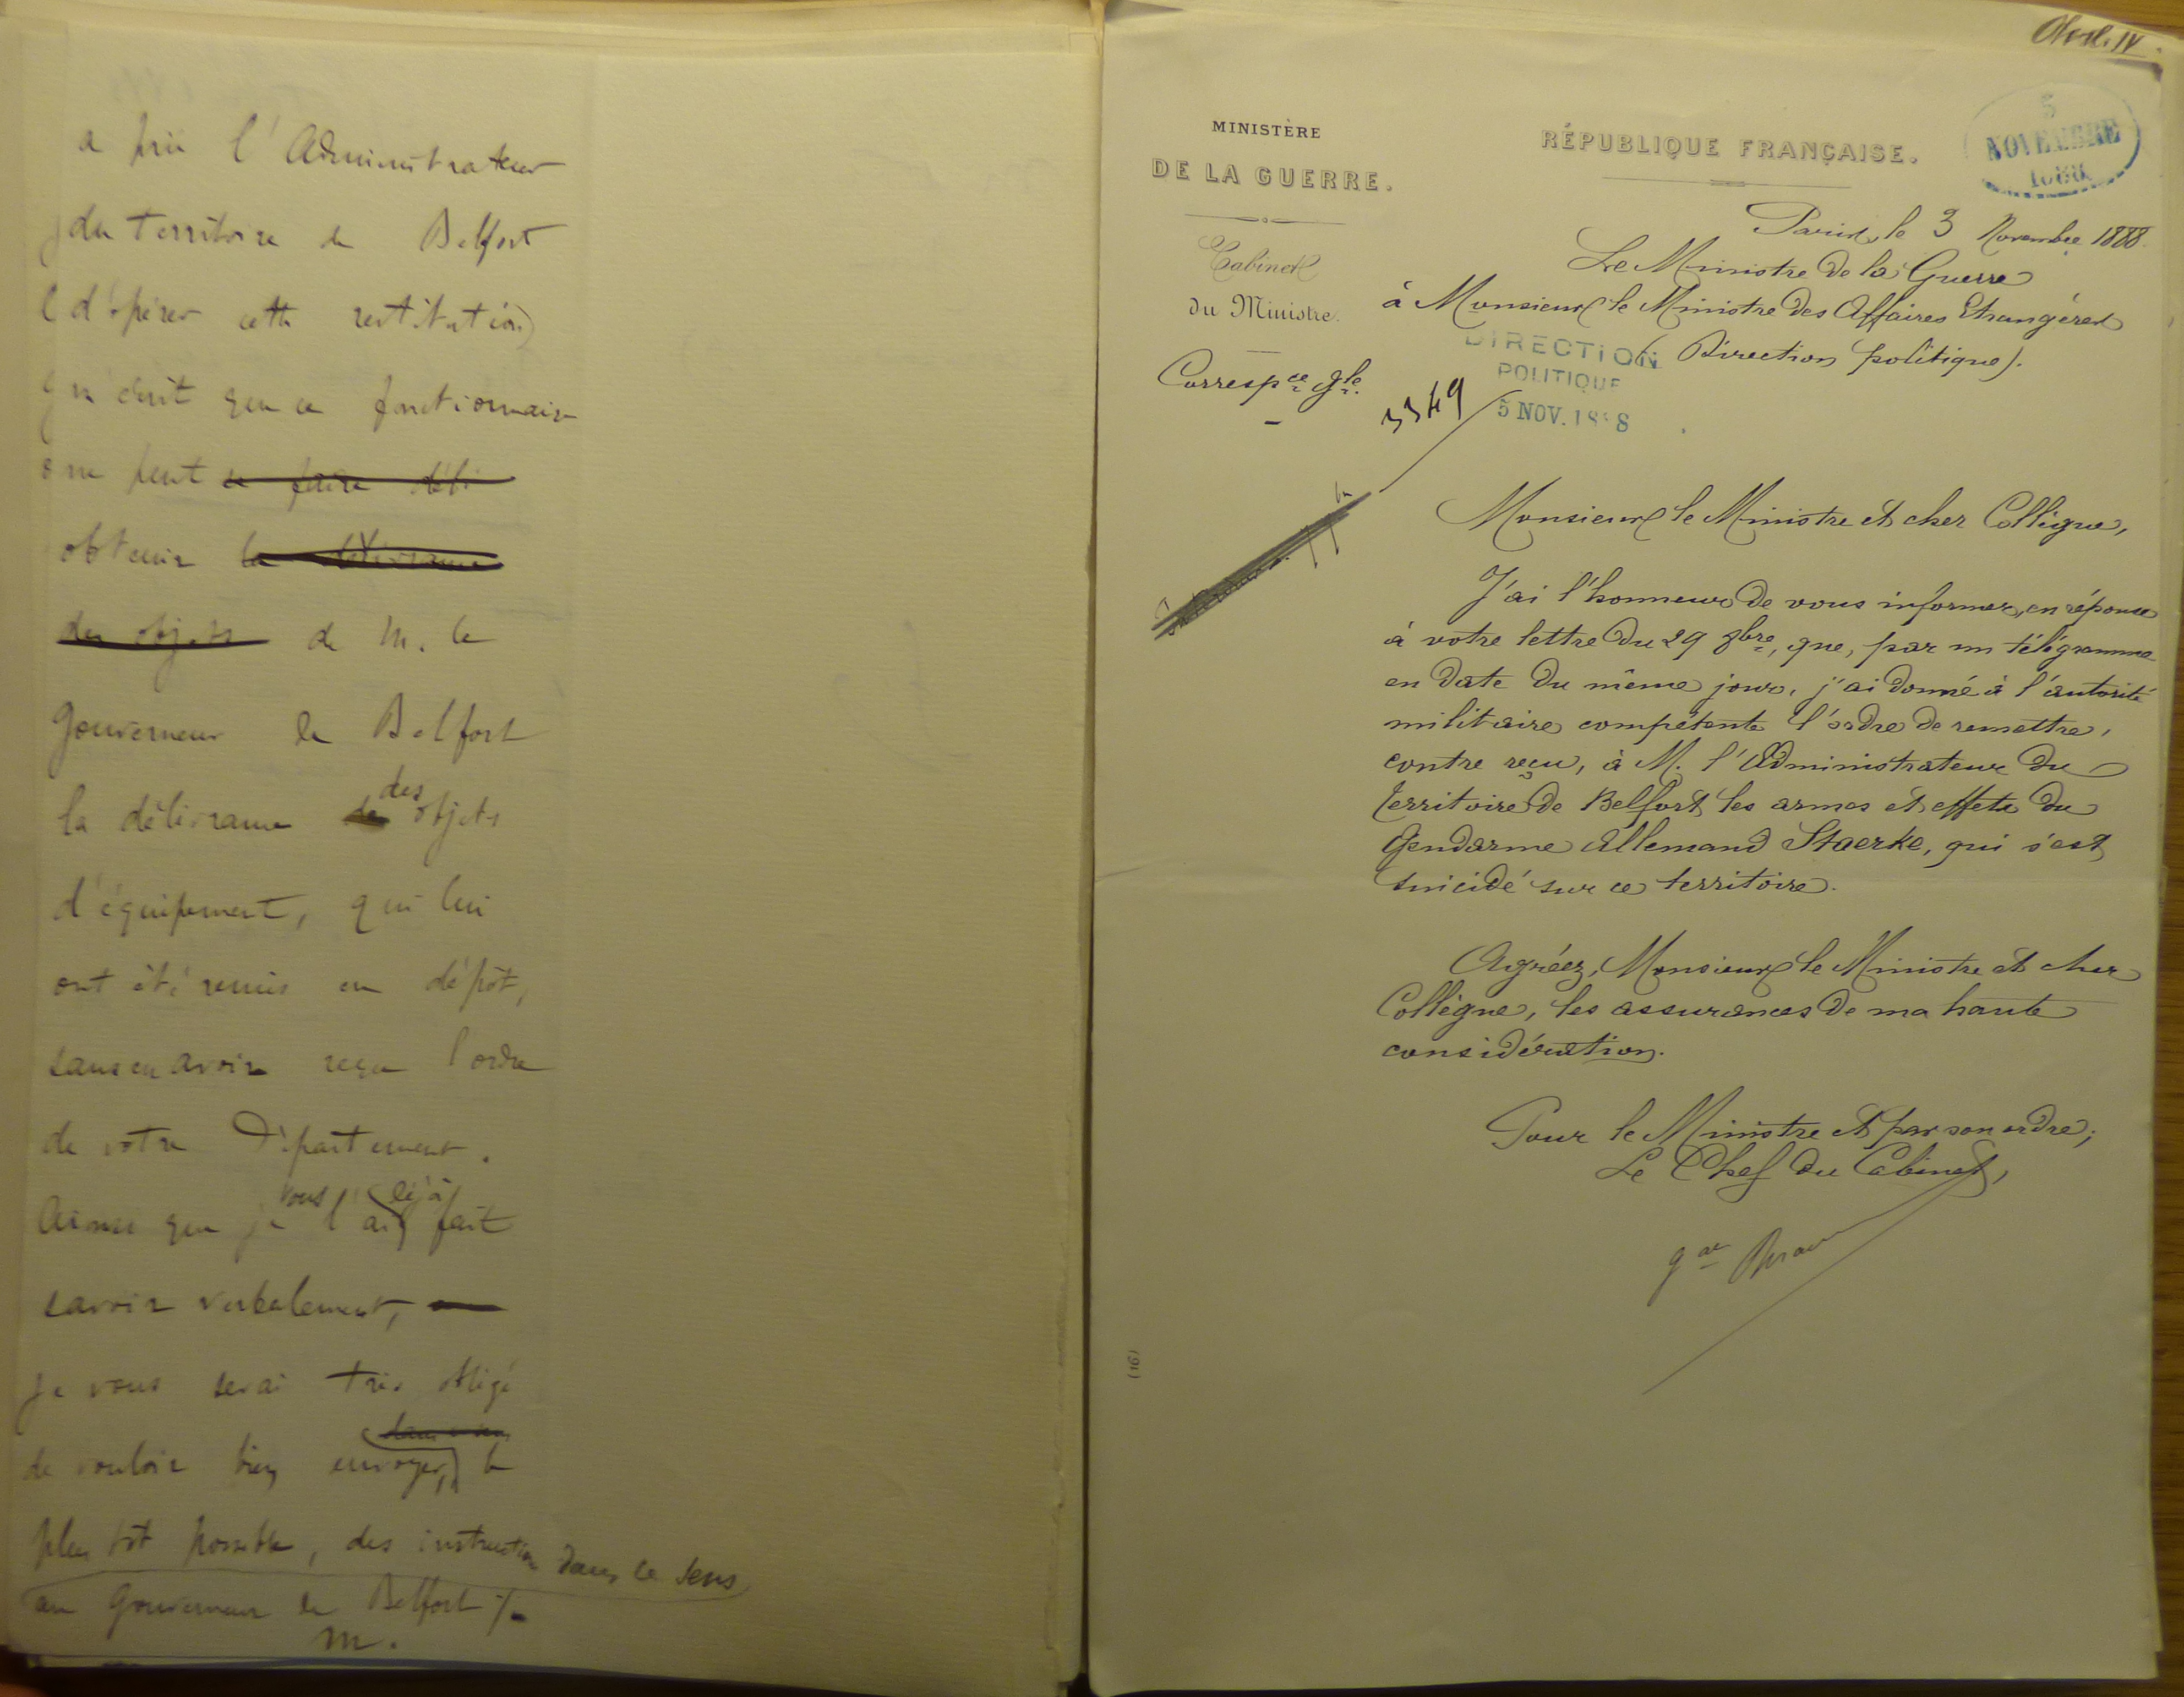 a prié l'Administrateur
du territoire de Belfort
d'opérer cette restitution
écrit que ce fonctionnaire
ne peut se faire déli
obtenir la délivrance
des objets de M. le
Gouverneur de Belfort
des
la délivrance de objets
d'équipement, qui lui
ont été remis en dépôt,
sans en avoir reçu l'ordre
de votre Département.
vous déjà
Ainsi que je l'ai fait
savoir verbalement,
je vous serai très obligé
dans ce sens
de vouloir bien envoyer, le
plus tôt possible, des instructions dans ce sens
au Gouverneur de Belfort ./.
M.
MINISTÈRE
DE LA GUERRE.
Cabinet
du Ministre.
Correspce gle.
RÉPUBLIQUE FRANÇAISE.
5
NOVEMBRE
1888
Paris, le 3 Novembre 1888.
Le Ministre de la Guerre
à Monsieur le Ministre des Affaires Etrangères
(Direction politique).
DIRECTION
POLITIQUE
5 NOV. 1888
3349
Monsieur le Ministre et cher Collègue,
J'ai l'honneur de vous informer, en réponse
à votre lettre du 29 8bre, que, par un télégramme
en date du même jour, j'ai donné à l'autorité
militaire compétente l'ordre de remettre,
contre reçu, à M. l'Administrateur du
territoire de Belfort les armes et effets du
Gendarme Allemand Staerke, qui s'est
suicidé sur ce territoire.
Agréez, Monsieur le Ministre et cher
Collègue, les assurances de ma haute
considération.
Pour le Ministre et par son ordre;
Le Chef du Cabinet,
gal
(16)